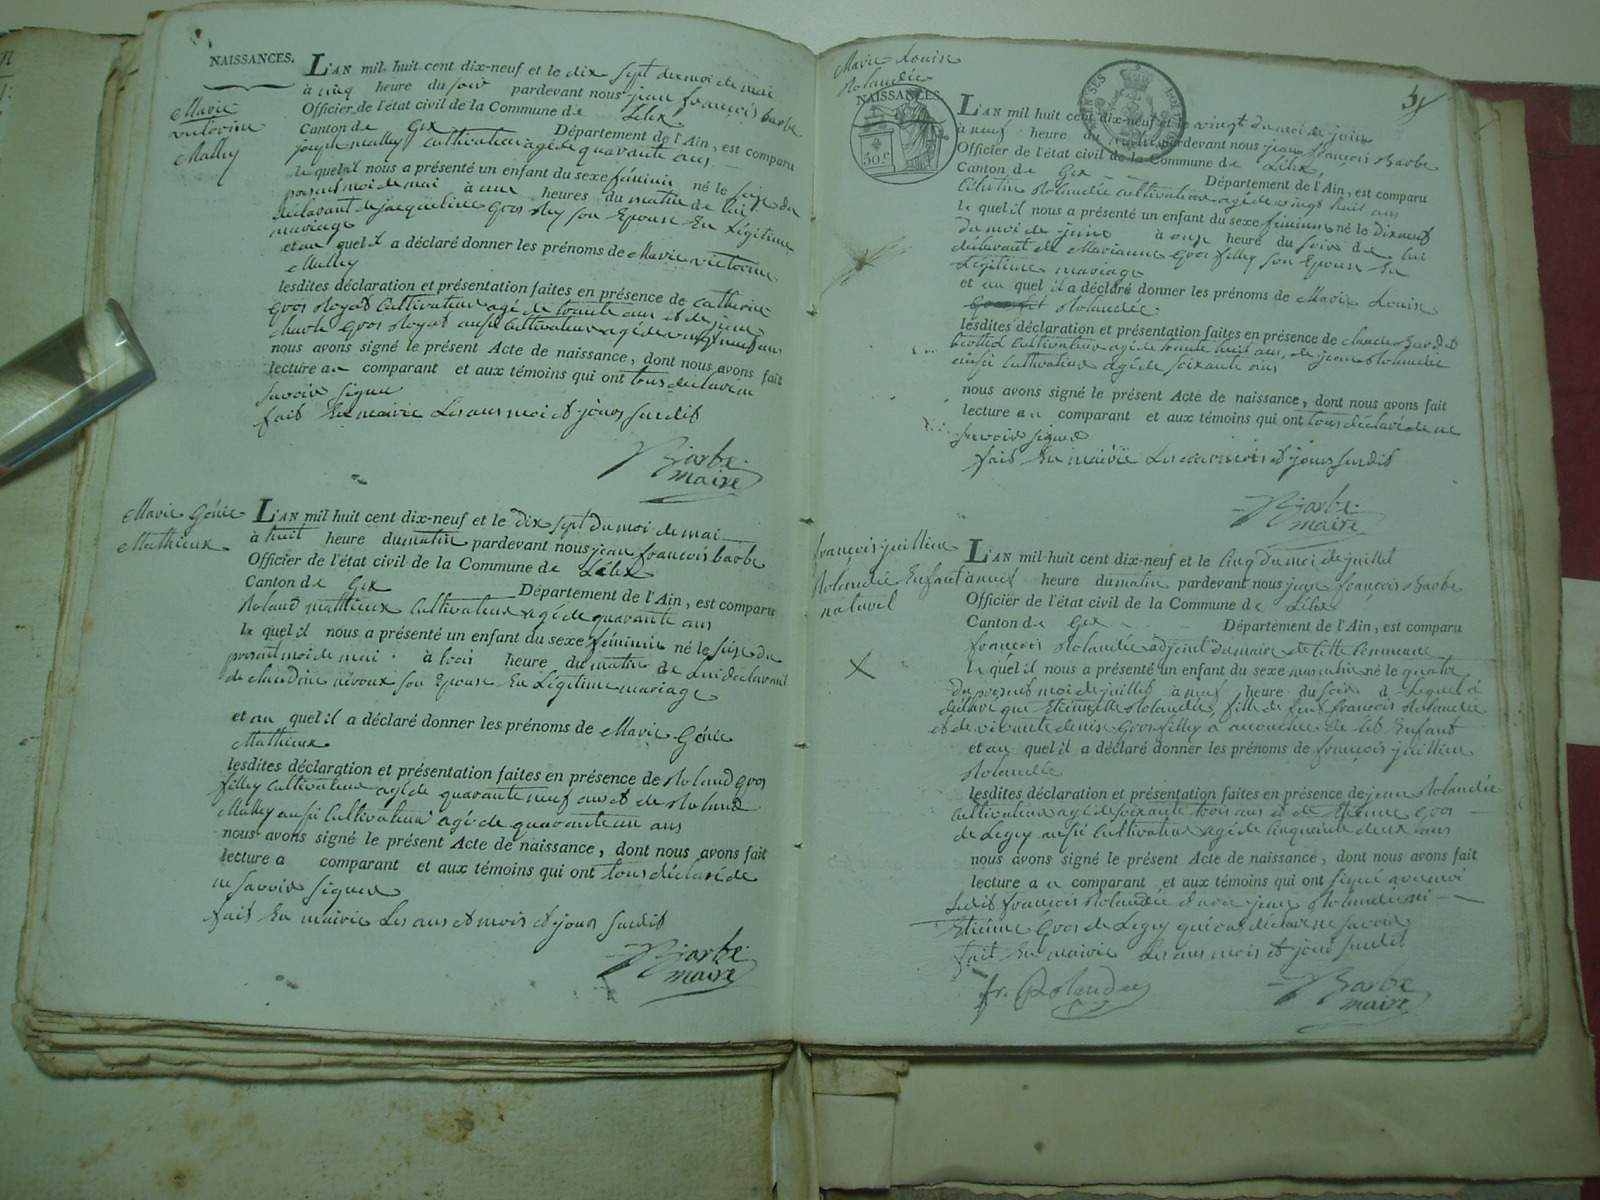 NAISSANCES.
Marie
victorine
Malley
L'AN mil huit cent dix-neuf et le dix sept du moi de mai
à cinq heure du soir pardevant nous jean françois barbe
Officier de l'état civil de la Commune de Lélex
Canton de Gex Département de l'Ain, est comparu
joseph mallay cultivateur agé de quarante ans
le quel il nous a présenté un enfant du sexe féminin né le seize du
présent moi de mai à une heures du matin de lui
déclarant de jacqueline gros son Epouse En Légitime
mariage
et au quel il a déclaré donner les prénoms de Marie victorine
Mallay
lesdites déclaration et présentation faites en présence de
gros cultivateur agé de trante ans et de
gros aussi cultivateur agé de vingt neuf ans
nous avons signé le présent Acte de naissance, dont nous avons fait
lecture au comparant et aux témoins qui ont tous déclaré ne
savoir signer
fait En mairie Les ans moi et jours susdit
Barbe
maire
Marie Génie
Mathieux
L'AN mil huit cent dix-neuf et le dix sept du moi de mai
à huit heure du matin pardevant nous jean françois barbe
Officier de l'état civil de la Commune de Lélex
Canton de Gex Département de l'Ain, est comparu
Roland mathieux cultivateur agé de quarante ans
le quel il nous a présenté un enfant du sexe féminin né le seize du
présent moi de mai à trois heure du matin de Lui déclarant
de claudine son Epouse En Légitime mariage
et au quel il a déclaré donner les prénoms de Marie Génie
Mathieux
lesdites déclaration et présentation faites en présence de Roland gros
filley cultivateur agé de quarante neuf ans et de Roland
Mallay aussi cultivateur agé de quarante un ans
nous avons signé le présent Acte de naissance, dont nous avons fait
lecture a comparant et aux témoins qui ont tous déclaré de
ne savoir signer
fait En mairie Les ans et mois et jours susdit
Barbe
maire
Marie Louise
Rolandée
NAISSANCES.
50 c
L'AN mil huit cent dix-neuf et le vingt du moi de juin
à neuf heure du matin pardevant nous jean françois Barbe
Officier de l'état civil de la Commune de Lélex
Canton de Gex Département de l'Ain, est comparu
Rolandée cultivateur agé de vingt huit ans
le quel il nous a présenté un enfant du sexe féminin né le Dixneuf
du moi de juin à onze heure du soir de lui
déclarant de Marianne gros filley son Epouse En
Légitime mariage
et au quel il a déclaré donner les prénoms de Marie Louise
Rolandée
lesdites déclaration et présentation faites en présence de claude
cultivateur agé de trante huit ans, de jean Rolandée
aussi cultivateur agé de soixante ans
nous avons signé le présent Acte de naissance, dont nous avons fait
lecture au comparant et aux témoins qui ont tous déclaré de ne
savoir signer
fait En mairie Les an mois et jours susdit
Barbe
maire
françois juillien
Rolandée Enfant
naturel
L'AN mil huit cent dix-neuf et le cinq du moi de juillet
à neuf heure du matin pardevant nous jean françois Barbe
Officier de l'état civil de la Commune de Lélex
Canton de Gex Département de l'Ain, est comparu
françois Rolandée adjoint du maire de cette Commune
le quel il nous a présenté un enfant du sexe masculin né le quatre
du présent moi de juillet à neuf heure du soir Lequel a
déclaré que Etiennette Rolandée, fille de feux françois Rolandée
et de vivante denise gros filley a accouchée de dit Enfant
et au quel il a déclaré donner les prénoms de françois juillien
Rolandée
lesdites déclaration et présentation faites en présence de jean Rolandée
cultivateur agé de soixante trois ans et de Etienne gros
de Légry aussi cultivateur agé de cinquante deux ans
nous avons signé le présent Acte de naissance, dont nous avons fait
lecture a u comparant et aux témoins qui ont signé avec moi
Ledit françois Rolandée et avec jean Rolandée
Etienne gros de Légry qui ont déclaré ne savoir
fait En mairie Les ans mois et jour susdit
fr. Rolandez
Barbe
maire